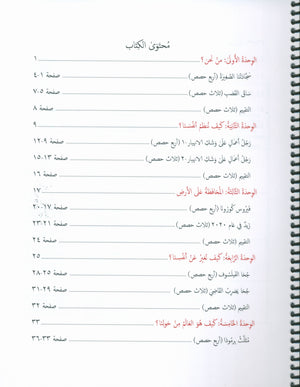 مُحتَوَى الكِتاب
الوِحدَةُ الأُولَى: مَنْ نَحنُ؟ ١
سِجِلّاتُنا الصَّغِيرَةُ (أربع حصص) صفحة ١-٤
ساق القَصَب (ثلاث حصص) صفحة ٥-٧
التقييم (ثلاث حصص) صفحة ٨
الوِحدَةُ الثّانِيَةُ: كَيفَ نُنظِّمُ أنفُسَنا؟ ٩
رَجُلُ أعمالٍ عَلَى وَشَكِ الانهِيارِ ١ (أربع حصص) صفحة ٩-١٢
رَجُلُ أعمالٍ عَلَى وَشَكِ الانهِيارِ ٢ (أربع حصص) صفحة ١٣-١٥
التقييم (ثلاث حصص) صفحة ١٦
الوِحدَةُ الثّالِثَةُ: المُحافَظَةُ عَلَى الأرضِ ١٧
فَيرُوس كُورُونا (أربع حصص) صفحة ١٧-٢٠
زَيدٌ في عَام ٢٠٢٠ (ثلاث حصص) صفحة ٢١-٢٣
التقييم (ثلاث حصص) صفحة ٢٤
الوِحدَةُ الرّابِعَةُ: كَيفَ نُعَبِّرُ عَنْ أنفُسِنا؟ ٢٥
جُحا الفَيلَسُوف (أربع حصص) صفحة ٢٥-٢٨
جُحا يَضرِبُ القاضِيَ (ثلاث حصص) صفحة ٢٩-٣١
التقييم (ثلاث حصص) صفحة ٣٢
الوِحدَةُ الخامِسَةُ: كَيفَ هُوَ العَالَمُ مِنْ حَولِنا؟ ٣٣
مُثَلَّثُ بِرمُودا (أربع حصص) صفحة ٣٣-٣٦